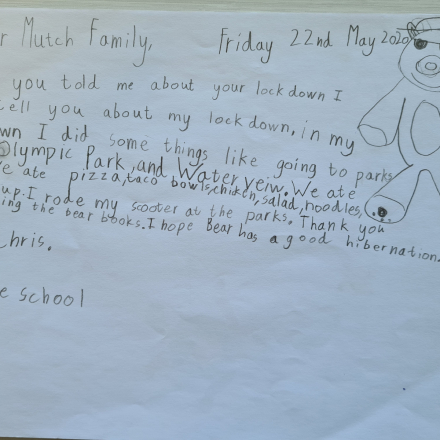 r Mutch Family, Friday 22nd May 2020
you told me about your lockdown I
tell you about my lockdown, in my
wn I did some things like going to parks
Olympic Park, and Water veiw. We ate
e ate pizza, taco bowls, chickn, salad, noodles,
up. I rode my scooter at the parks. Thank you
ing the bear books. I hope Bear has a good hibernation.
Chris.
e school